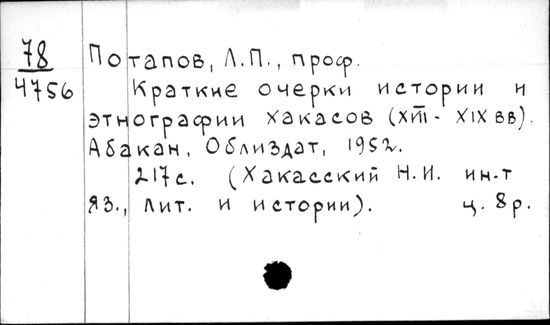 78
4756
Потапов, Л.П., проф.
Краткие очерки истории и
этнографии хакасов (XVIII- XIX вв).
Абакан, Облиздат, 1952.
217с. (Хакасский Н.И. ин-т
яз., лит. и истории). ц. 8р.